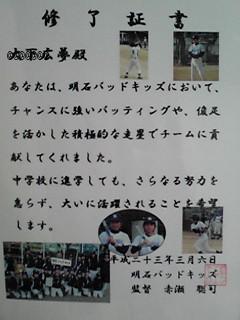 修了証書
広夢殿
あなたは、明石バッドキッズにおいて、
チャンスに強いバッティングや、俊足
を活かした積極的な走塁でチームに貢
献してくれました。
中学校に進学しても、さらなる努力を
怠らず、大いに活躍されることを希望
します。
平成二十三年三月六日
明石バッドキッズ
監督 赤瀬 聡司